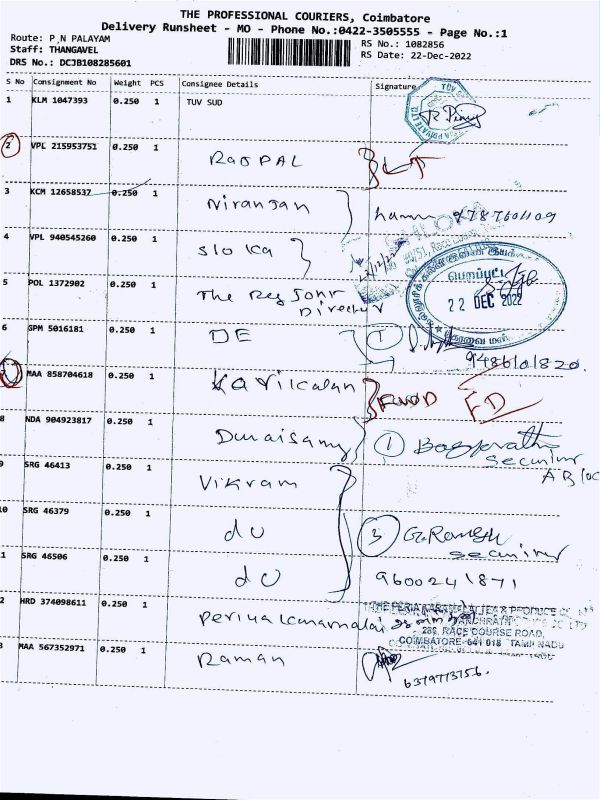 THE PROFESSIONAL COURIERS, Coimbatore
Delivery Runsheet - MO - Phone No.:0422-3505555 - Page No.:1
Route: P N PALAYAM
Staff: THANGAVEL
DRS No.: DCJB108285601
RS No.: 1082856
RS Date: 22-Dec-2022
S No Consignment No Weight PCS Consignee Details Signature
1 KLM 1047393 0.250 1 TUV SUD
2 VPL 215953751 0.250 1 RajPAL
3 KCM 12658537 0.250 1 Niranjan
4 VPL 940545260 0.250 1 Sloka
5 POL 1372902 0.250 1 The Reg Joint
Director
பெறப்பட்டது
22 DEC 2022
6 GPM 5016181 0.250 1 DE 1
9486101820.
MAA 858704618 0.250 1 Kavilkalan FD
8 NDA 904923817 0.250 1 Duraisamy 1
security
9 SRG 46413 0.250 1 Vikram
10 SRG 46379 0.250 1 do 3 G. Ramesh
security
1 SRG 46506 0.250 1 do 9600241871
2 HRD 374098611 0.250 1 Periya Karamalai
THE PERIA KARAMALAI TEA & PRODUCE CO LTD
286, RACE COURSE ROAD,
COIMBATORE-641 018 TAMIL NADU
3 MAA 567352971 0.250 1 Raman
6379773756.